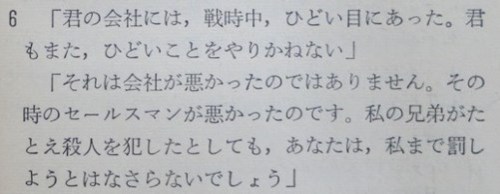 6 「君の会社には，戦時中，ひどい目にあった。君
もまた，ひどいことをやりかねない」
「それは会社が悪かったのではありません。その
時のセールスマンが悪かったのです。私の兄弟がた
とえ殺人を犯したとしても，あなたは，私まで罰し
ようとはなさらないでしょう」